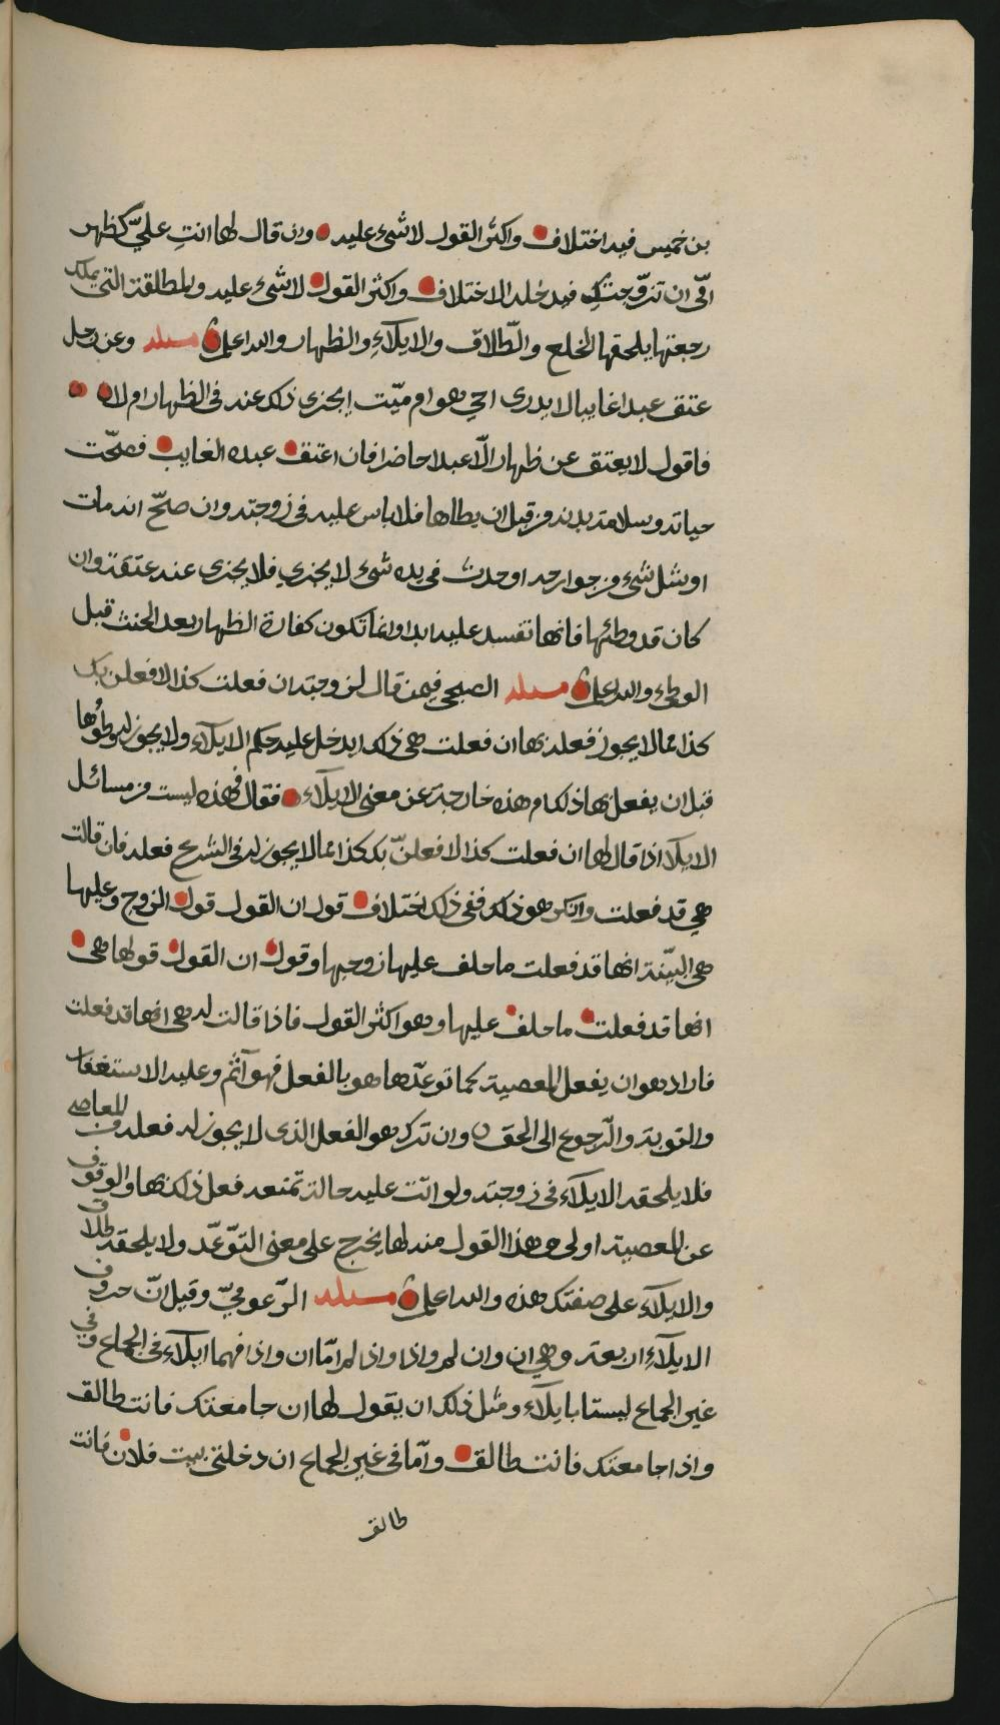 بن خميس فيه اختلاف واكثر القول لا شيء عليه وان قال لها انتِ عليّ كظهر
امّي ان تزوّجتكِ فهذا الاختلاف واكثر القول لا شيء عليه والمطلقة التي يملك
رجعتها يلحقها الخلع والطّلاق والايلآء والظهار والله اعلم مسئلة وعن رجل
عتق عبدا غايبا لا يدرى احي هو ام ميّت ايجزى ذلك عنه في الظهار ام لا
فاقول لا يعتق عن ظهار الّا عبدا حاضرا فان اعتق عبده الغايب فصحّت
حياته وسلامة بدنه من قبل ان يطاها فلا باس عليه في زوجته وان صحّ انه مات
او شل شيء من جوارحه او حدث في يده شيء لا يجزي فلا يجزى عنه عتقه وان
كان قد وطئها فانها تفسد عليه ابدا وانما تكون كفارة الظهار بعد الحنث قبل
الوطي والله اعلم مسئلة الصبحي فيمن قال لزوجته ان فعلت كذا لافعلن بك
كذا مما لا يجوز فعله بها ان فعلت هي ذلك ايدخل عليه حكم الايلآء ولا يجوز له وطؤها
قبل ان يفعل بها ذلك ام هذه خارجة عن معنى الايلآء فقال فهذه ليست من مسائل
الايلآ اذا قال لها ان فعلت كذا لافعلنّ بك كذا مما لا يجوز له في الشرع فعله فان قالت
هي قد فعلت وانكر هو ذلك ففي ذلك اختلاف قول ان القول قول الزوج وعليها
هي البيّنة انها قد فعلت ما حلف عليها زوجها وقول ان القول قولها هي
انها قد فعلت ما حلف عليها وهو اكثر القول فاذا قالت له هي انها قد فعلت
فاراد هو ان يفعل المعصية كما توعّدها هو بالفعل فهو آثم وعليه الاستغفار
والتوبة والرّجوع الى الحق وان ترك هو الفعل الذى لا يجوز له فعله من المعاصي
فلا يلحقه الايلآء في زوجته ولو اتت عليه حالة تمنعه فعل ذلك بها والوقوف
عن المعصية اولى وهذا القول منه لها يخرج على معنى التوّعّد ولا يلحقه طلاق
والايلآء على صفتك هذه والله اعلم مسئلة الزّعوميّ وقيل انّ حروف
الايلآءِ اربعة وهي ان وان لم واذا واذا لم امّا ان واذا فهما ايلآء في الجماع وفي
غير الجماع ليستا بايلآء ومثل ذلك ان يقول لها ان جامعتك فانت طالق
واذا جامعتك فانت طالق وامّا في غير الجماع ان دخلتي بيت فلان فانت
طالق